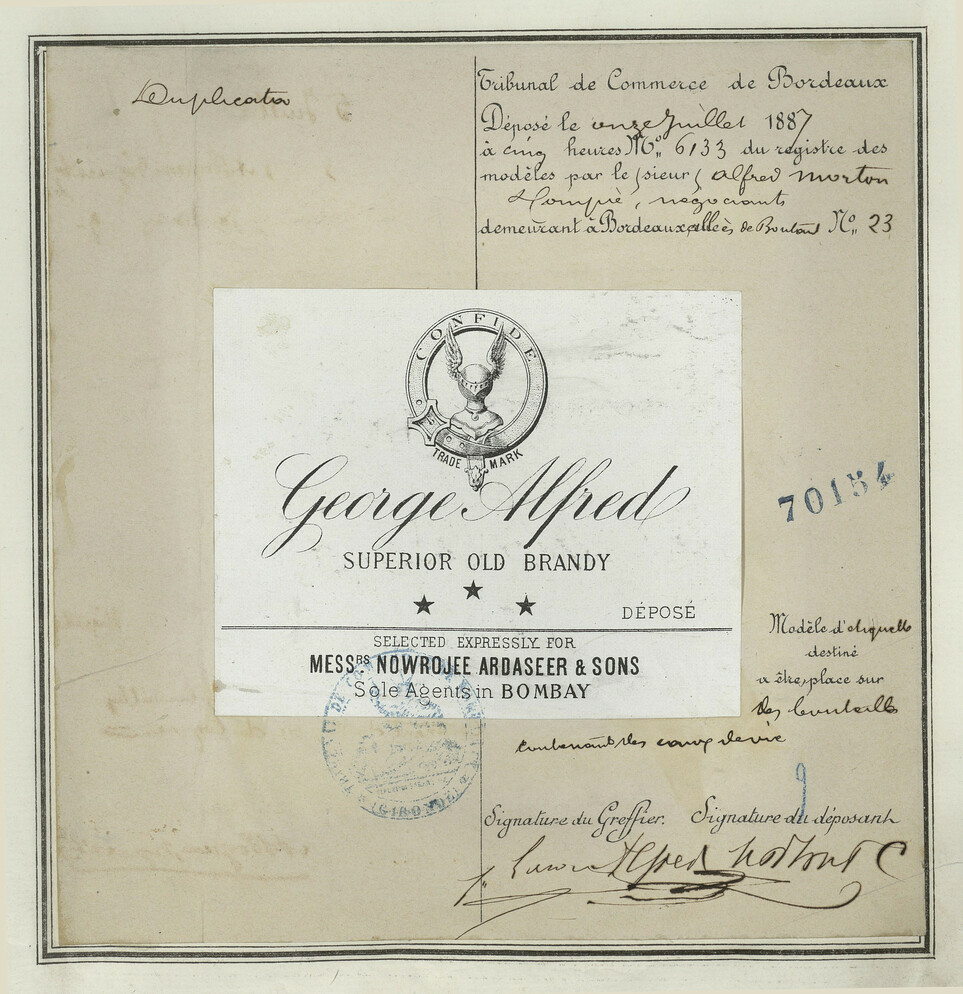 Duplicata
Tribunal de Commerce de Bordeaux
Déposé le onze Juillet 1887
à cinq heures No. 6133 du registre des
modèles par le sieur Alfred Morton
négociants
demeurant à Bordeaux allées de Boutaut No. 23
CONFIDE
TRADE MARK
George Alfred
SUPERIOR OLD BRANDY
DÉPOSÉ
SELECTED EXPRESSLY FOR
MESSRS. NOWROJEE ARDASEER & SONS
Sole Agents in BOMBAY
70154
Modèle d'étiquette
destiné
a être place sur
des bouteilles
contenant des eaux de vie
GIRONDE
Signature du Greffier. Signature du déposant
Alfred Morton & C